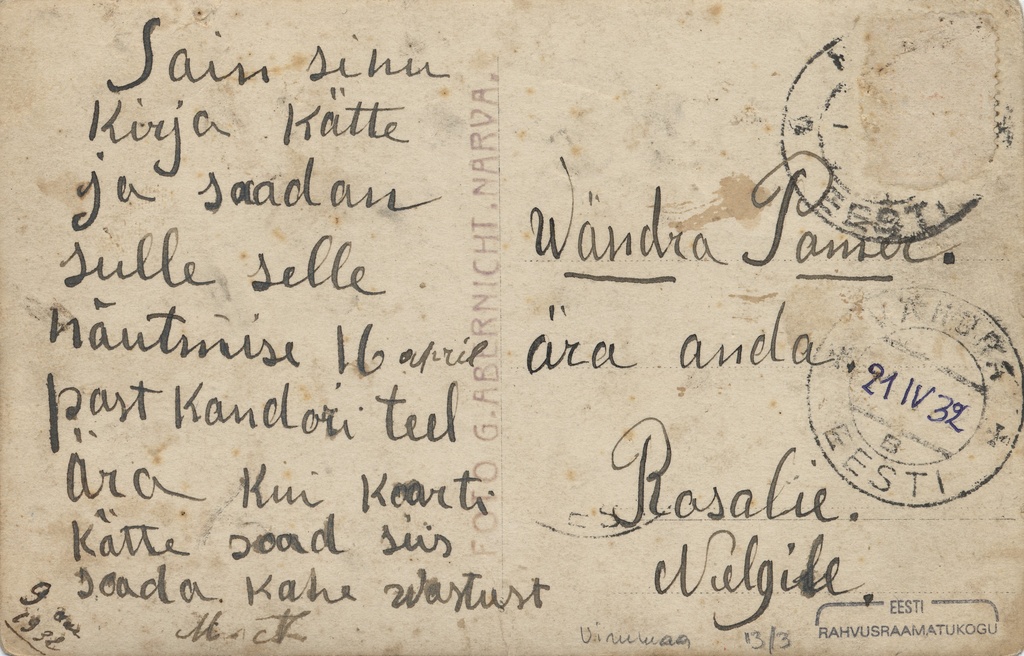 Sain sinu
Kirja Kätte
ja saadan
sulle selle
näutmise 16 april
past Kandori teel
Ära Kui Kaarti
Kätte soad siis
soada Kahe wastust
9
1932
FOTO G. ABERNICHT. NARVA.
EESTI
Wändra Pamer.
ära anda.
21 IV 32
B
EESTI
Rosalie.
Nelgile.
13/3
EESTI
RAHVUSRAAMATUKOGU